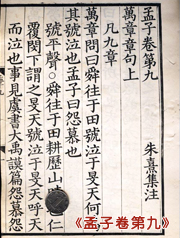 孟子卷第九
朱熹集注
萬章章句上
凡九章
萬章問曰舜往于田號泣于旻天何爲
其號泣也孟子曰怨慕也
號平聲○舜往于田耕歷山也仁
覆閔下謂之旻天號泣于旻天呼天
而泣也事見虞書大禹謨篇怨慕怨
《孟子卷第九》